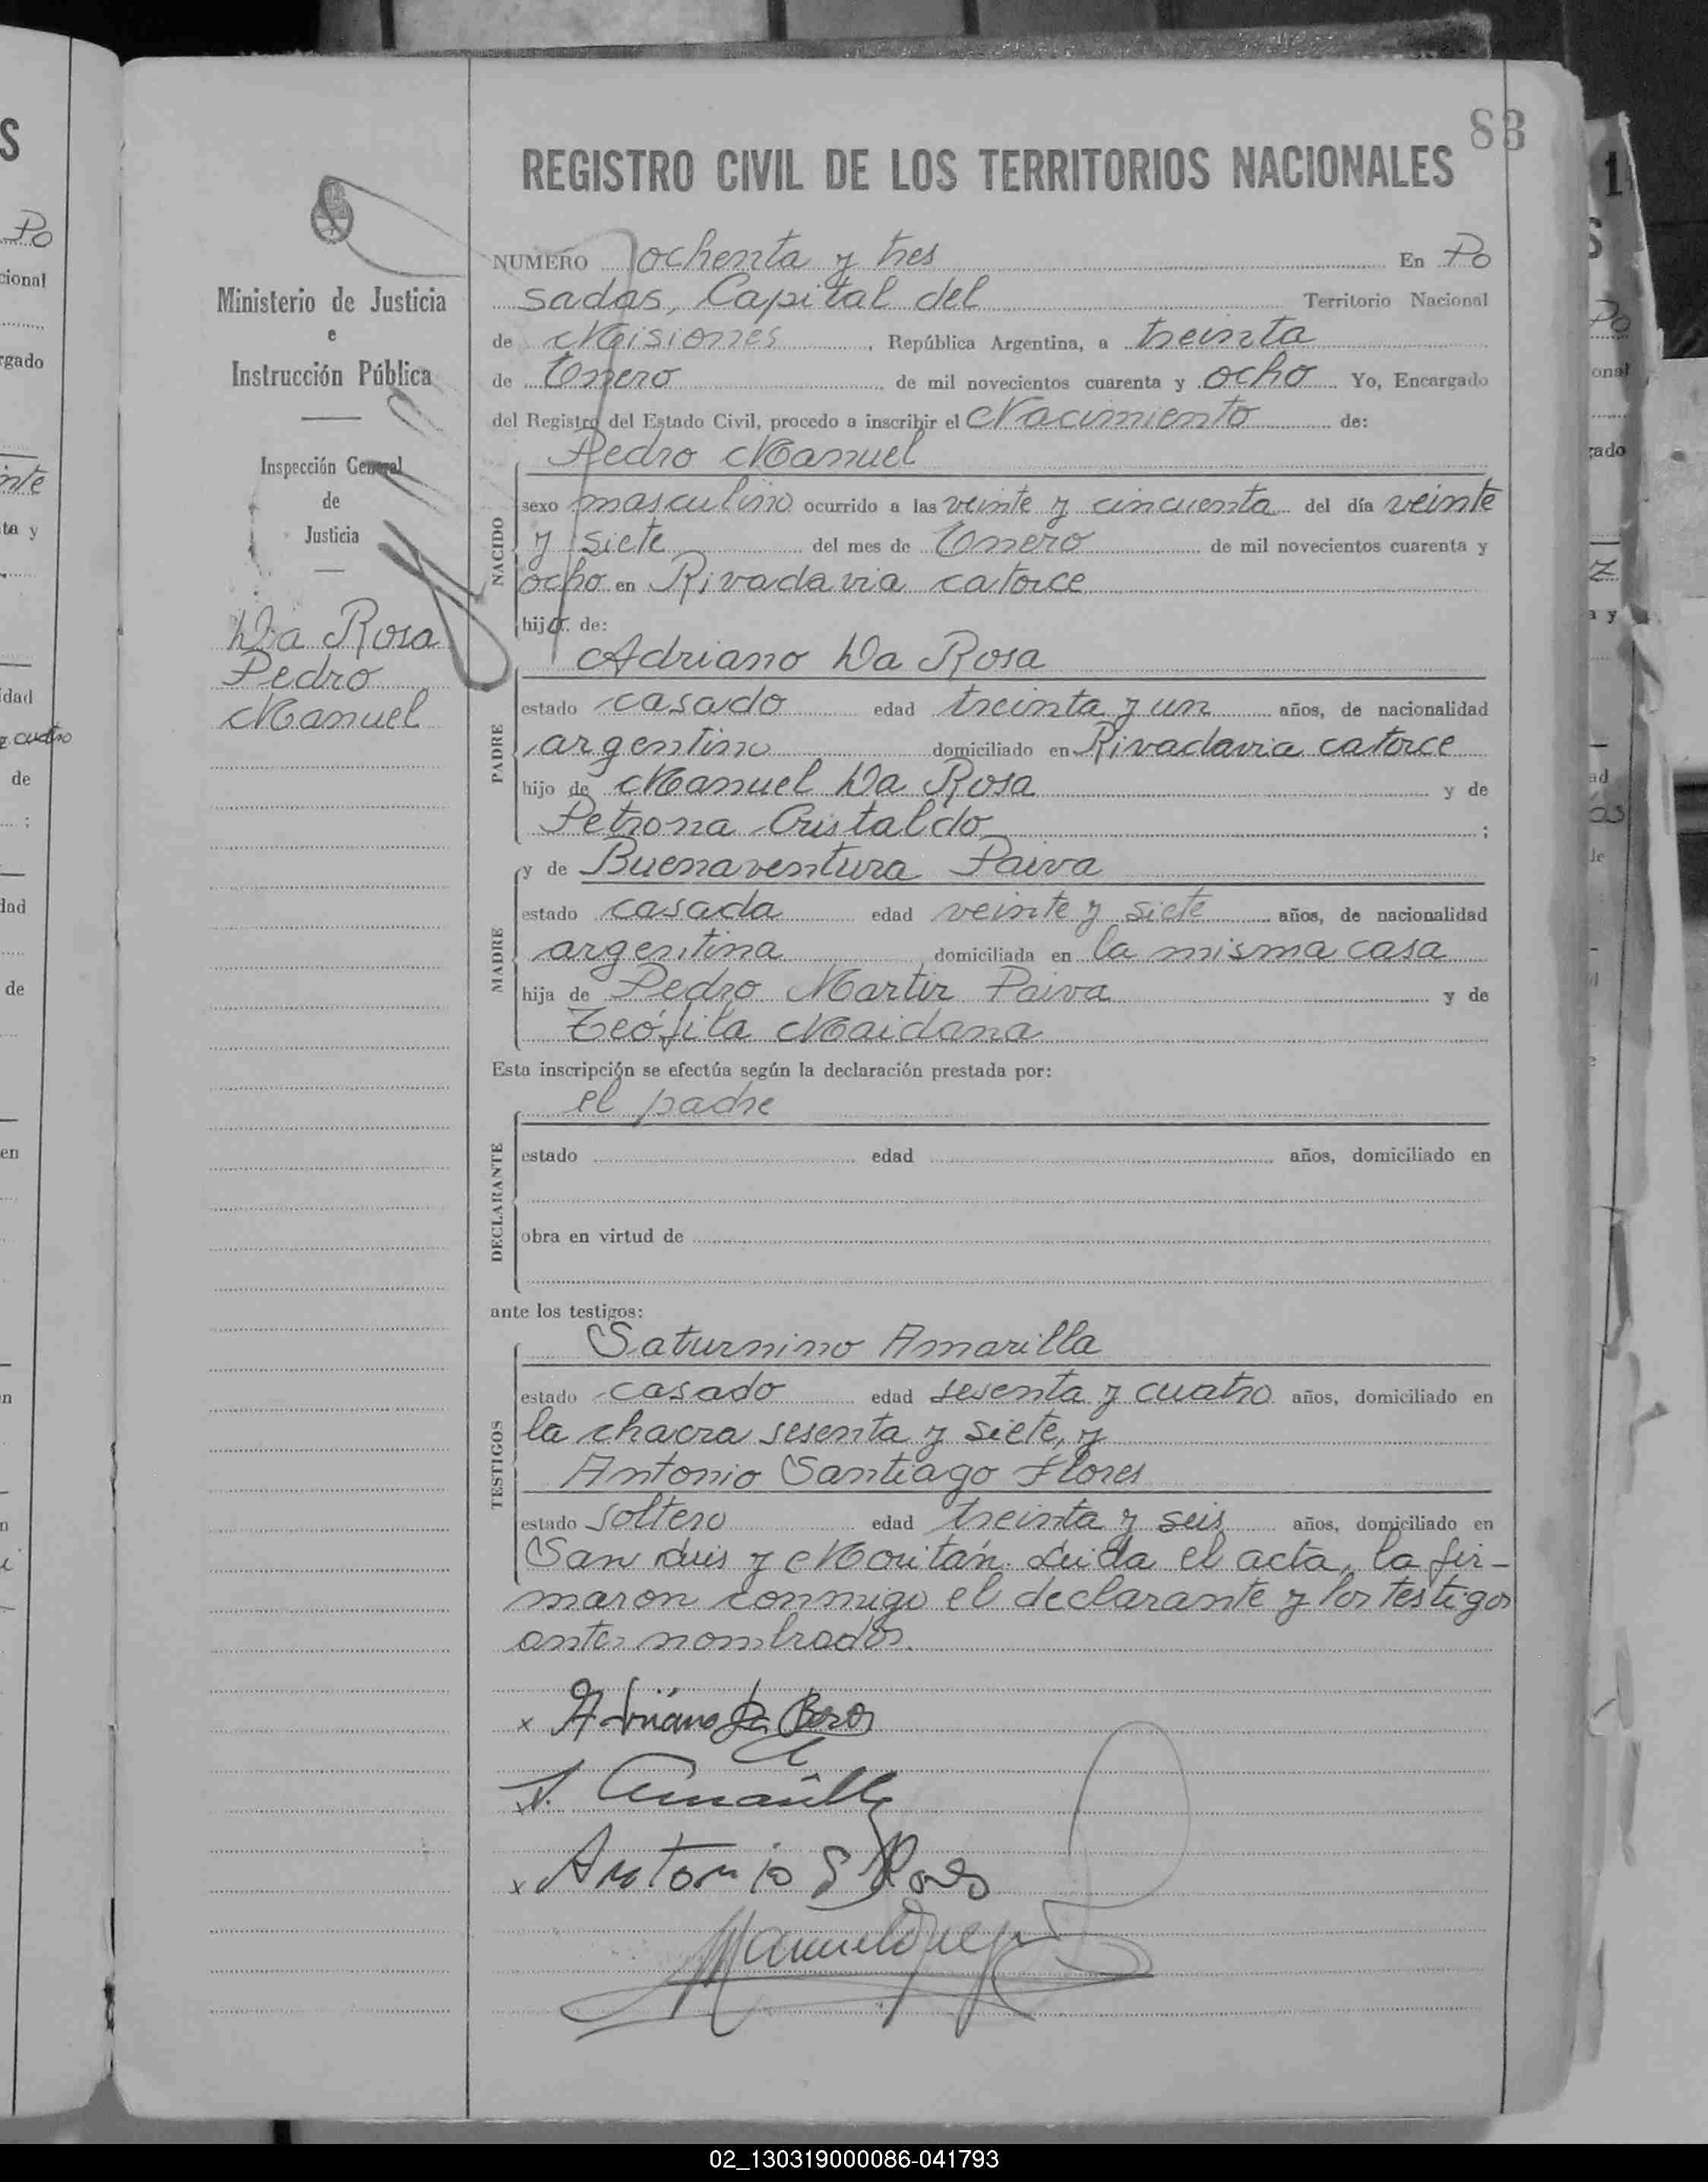 83
REGISTRO CIVIL DE LOS TERRITORIOS NACIONALES
Ministerio de Justicia
e
Instrucción Pública
Inspección General
de
Justicia
Da Rosa
Pedro
Manuel
NUMERO ochenta y tres En Po
sadas, Capital del Territorio Nacional
de Misiones, República Argentina, a treinta
de Enero de mil novecientos cuarenta y ocho Yo, Encargado
del Registro del Estado Civil, procedo a inscribir el Nacimiento de:
Pedro Manuel
NACIDO
sexo masculino ocurrido a las veinte y cincuenta del día veinte
y siete del mes de Enero de mil novecientos cuarenta y
ocho en Rivadavia catorce
hijo de:
Adriano Da Rosa
PADRE
estado casado edad treinta y un años, de nacionalidad
argentino domiciliado en Rivadavia catorce
hijo de Manuel Da Rosa y de
Petrona Cristaldo ;
MADRE
y de Buenaventura Paiva
estado casada edad veinte y siete años, de nacionalidad
argentina domiciliada en la misma casa
hija de Pedro Martir Paiva y de
Teófila Maidana
Esta inscripción se efectúa según la declaración prestada por:
el padre
DECLARANTE
estado edad años, domiciliado en
obra en virtud de
ante los testigos:
TESTIGOS
Saturnino Amarilla
estado casado edad sesenta y cuatro años, domiciliado en
la chacra sesenta y siete, y
Antonio Santiago Flores
estado soltero edad treinta y seis años, domiciliado en
San Luis y Moritán. Leida el acta, la fir-
maron conmigo el declarante y los testigos
antes nombrados.
x Adriano Da Rosa
S. Amarilla
x Antonio S Flores
02_130319000086-041793